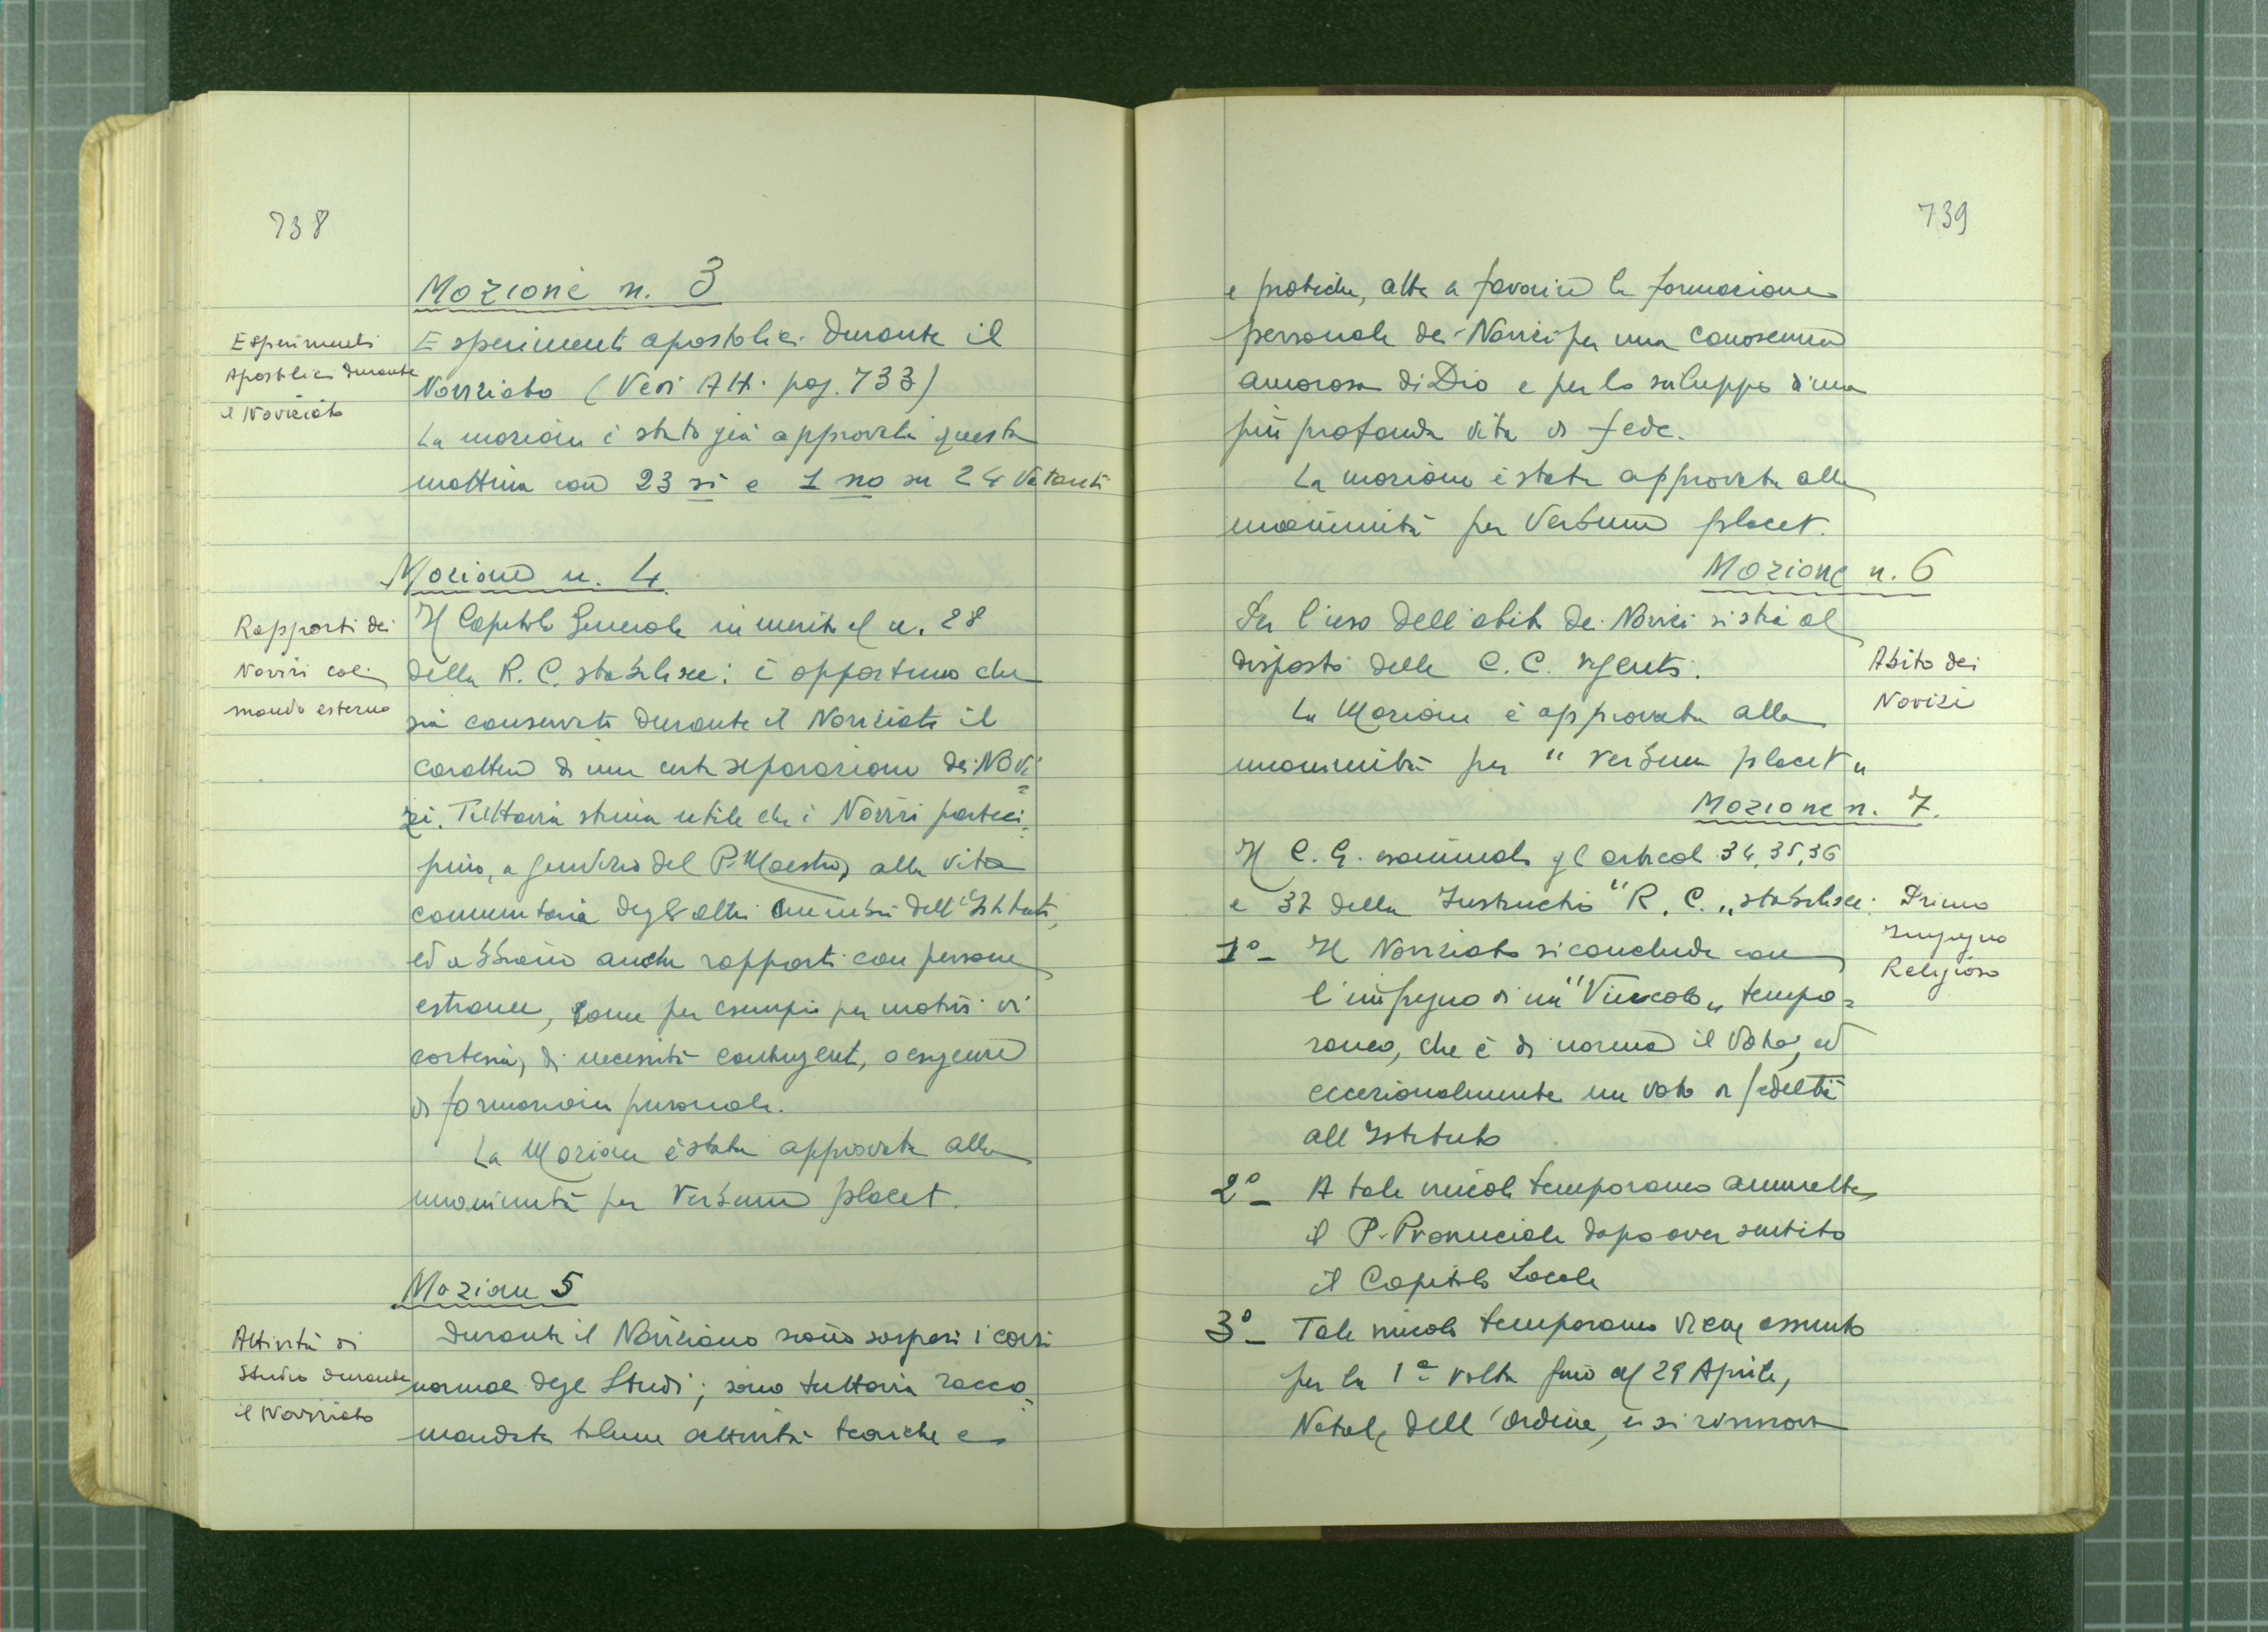 738
Mozione n. 3
Esperimenti
Apostolici durante
il Noviziato
Esperimenti apostolici durante il
Noviziato (Vedi Att. pag. 733)
La mozione è stata già approvata questa
mattina con 23 si e 1 no su 24 Votanti
Mozione n. 4
Rapporti dei
Novizi col
mondo esterno
Il Capitolo Generale in merito al n. 28
della R. C. stabilisce: è opportuno che
sia conservato durante il Noviziato il
carattere di una certa separazione dei Novi=
zi. Tuttavia stima utile che i Novizi parteci=
pino, a giudizio del P. Maestro, alla vita
comunitaria degli altri membri dell'Istituto,
ed abbiano anche rapporti con persone
estranee, come per esempio per motivi di
cortesia, di necessità contingenti, o esigenze
di formazione personale.
La Mozione è stata approvata alla
unanimità per Verbum placet.
Mozione 5
Attività di
Studio durante
il Noviziato
Durante il Noviziato sono sospesi i corsi
normali degli Studi; sono tuttavia racco=
mandate talune attività teoriche e
739
e pratiche, atte a favorire la formazione
personale dei Novizi per una conoscenza
amorosa di Dio e per lo sviluppo d'una
più profonda vita di fede.
La mozione è stata approvata alla
unanimità per Verbum placet.
Mozione n. 6
Per l'uso dell'abito dei Novizi si stia al
disposto delle C. C. vigenti.
Abito dei
Novizi
La Mozione è approvata alla
unanimità per "Verbum placet"
Mozione n. 7.
Il C. G. esaminati gli articoli 34, 35, 36
e 37 della Instructio "R. C." stabilisce:
Primo
Impegno
Religioso
1º - Il Noviziato si conclude con
l'impegno di un "Vincolo" tempo=
raneo, che è di norma il Voto, ed
eccezionalmente un voto di fedeltà
all'Istituto
2º - A tale vincolo temporaneo ammette
il P. Provinciale dopo aver sentito
il Capitolo Locale
3º - Tale vincolo temporaneo viene assunto
per la 1ª volta fino al 29 Aprile,
Natale dell'Ordine, e si rinnova